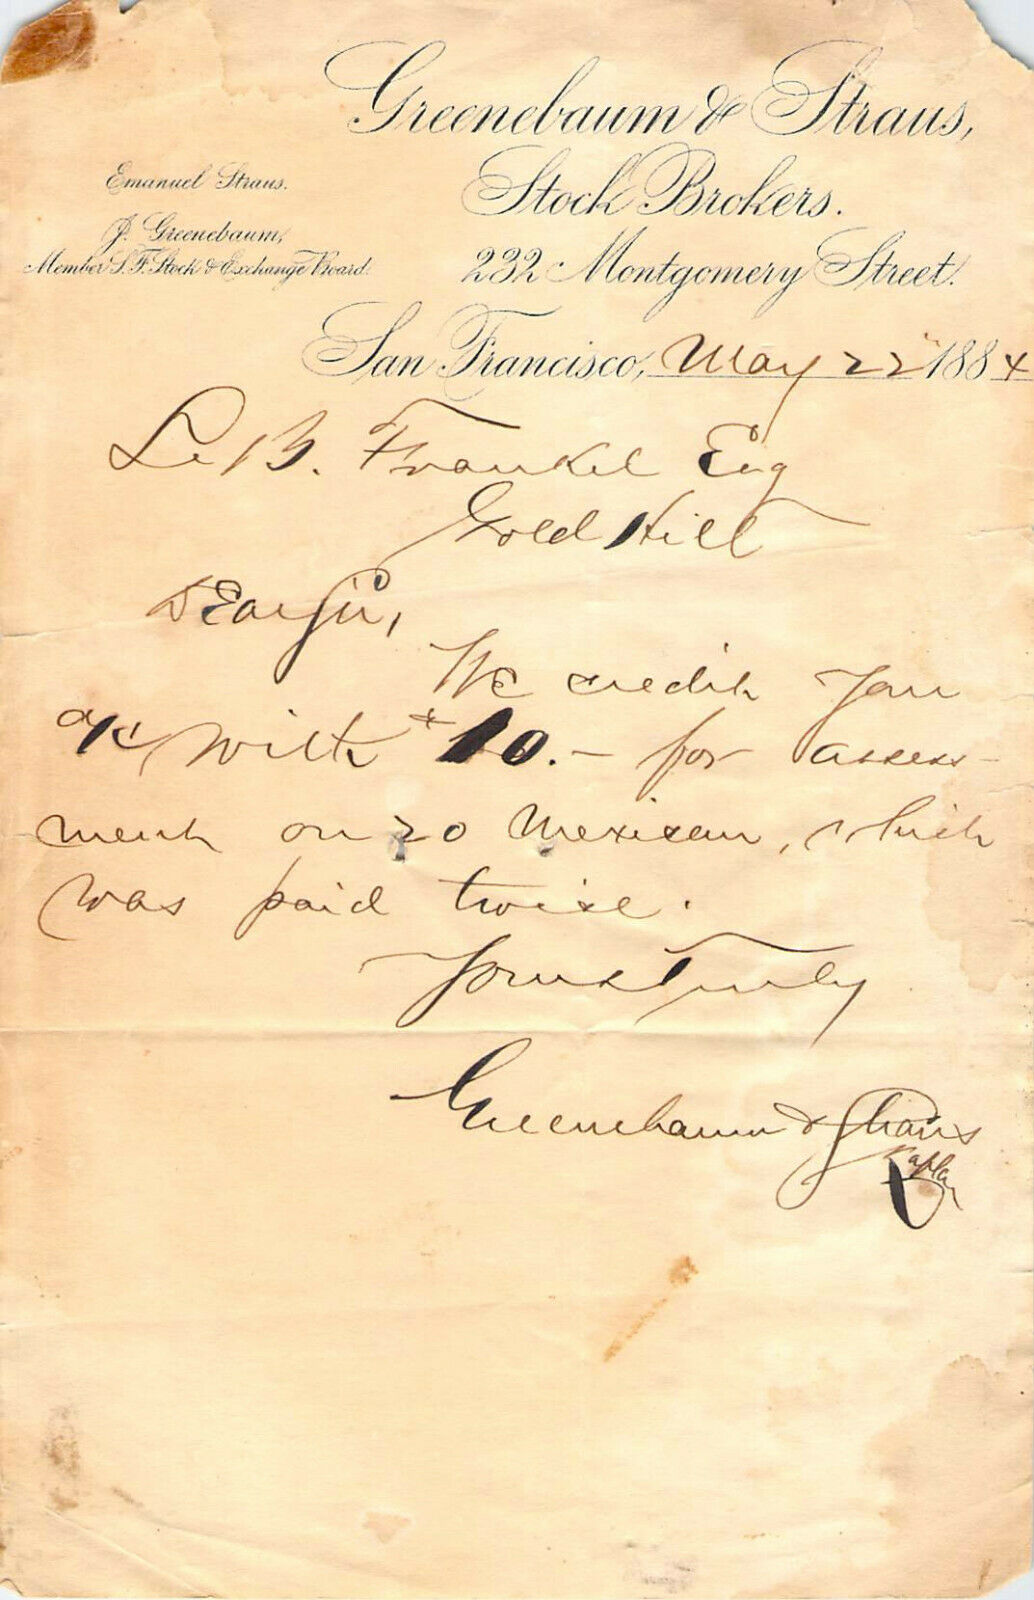 Greenebaum & Straus,
Stock Brokers.
232 Montgomery Street.
Emanuel Straus.
J. Greenebaum,
Member S. F. Stock & Exchange Board.
San Francisco, May 22" 1884
L. B. Frankel Esq
Gold Hill
Dear Sir,
We credit your
a/c with $10.- for assess-
ment on 20 Mexican, which
was paid twice.
Yours Truly
Greenebaum & Straus
Kaplan